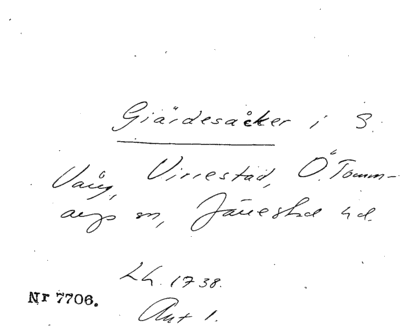 Giärdesåcker i S.
Vång, Virrestad, Ö. Tomm-
arps sn, Järrestad hd.
LL. 1738.
Akt 1.
Nr 7706.